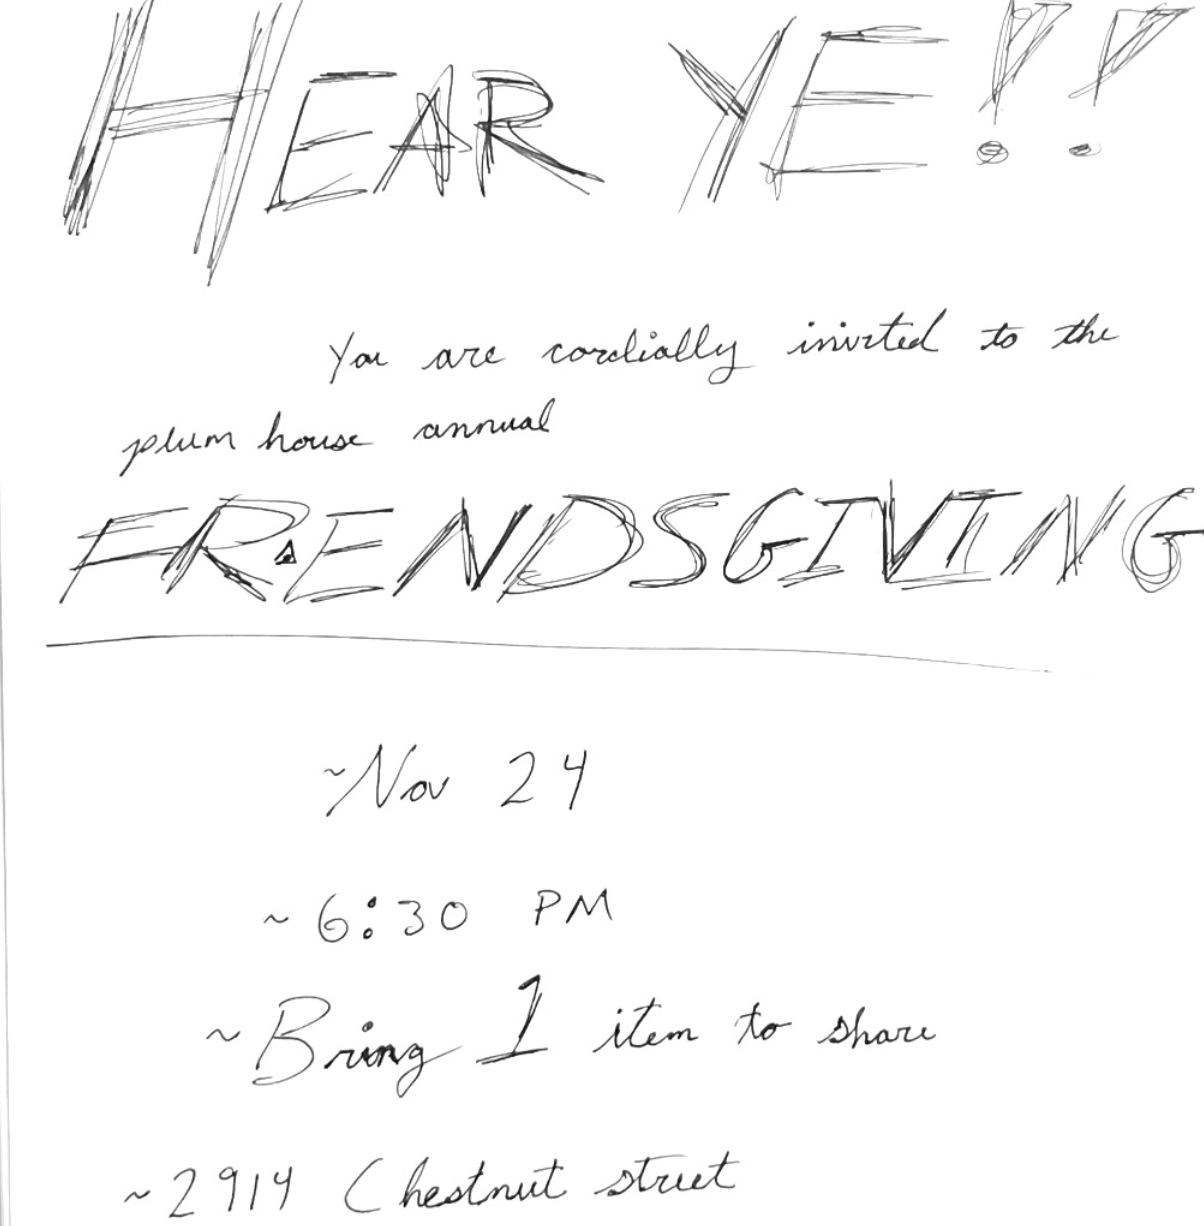 HEAR YE!!
You are cordially invited to the
plum house annual
FRIENDSGIVING
~Nov 24
~ 6:30 PM
~ Bring 1 item to share
~ 2914 Chestnut street